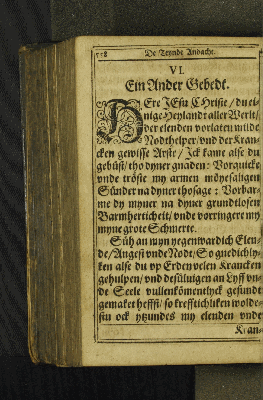 518 De Teynde Andacht.
VI.
Ein Ander Gebedt.
HEre JEsu CHriste / du ei-
nige Heylandt aller Werlt /
der elenden vorlaten milde
Nodthelper / vnd der Kran-
cken gewisse Arste / Jck kame alse du
gebüst / tho dyner gnaden: Vorquicke
vnde tröste my armen möyesaligen
Sünder na dyner thosage: Vorbar-
me dy myner na dyner grundtlosen
Barmherticheit / vnde vorringere my
myne grote Schmerte.
Süh an myn yegenwardich Elen-
de / Angest vnde Nodt / So gnedichly-
ken alse du vp Erden velen Krancken
gehulpen / vnd desülvigen an Lyff vn-
de Seele vullenkömentlyck gesundt
gemaket heffst / so krefftichliken wolde-
stu ock yzundes my elenden vnde
Kran-